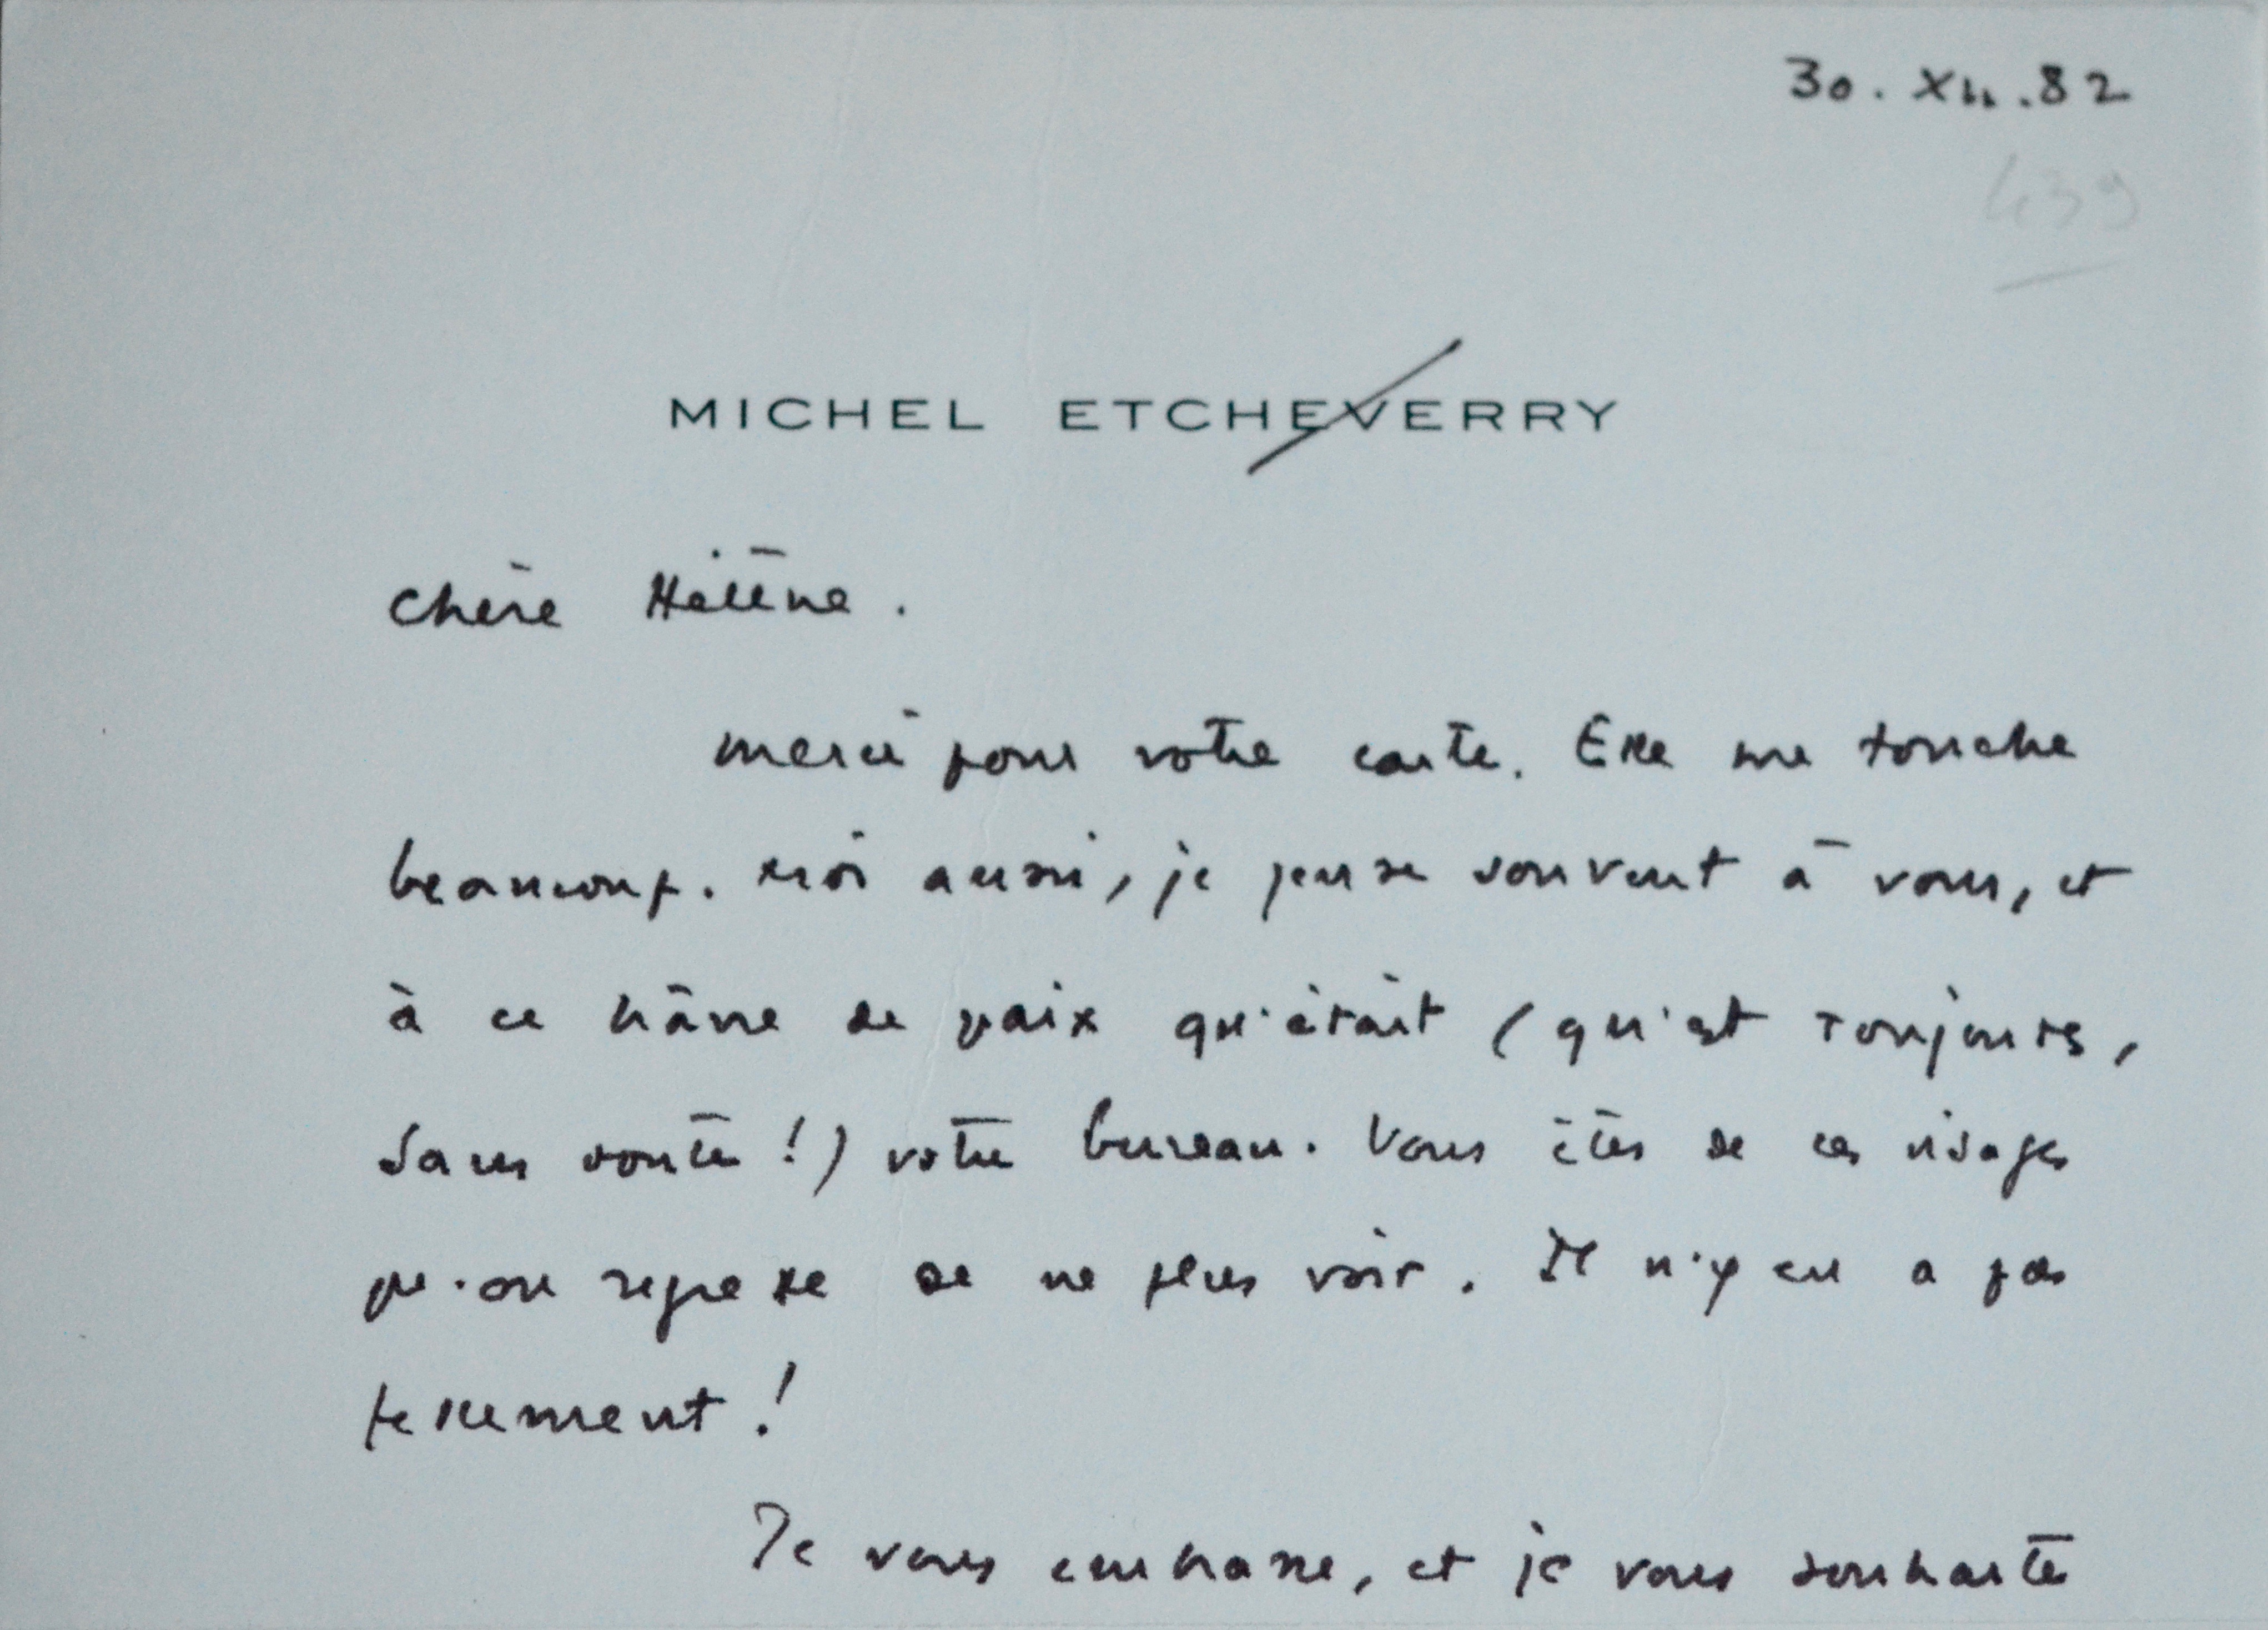 30. XII. 82
439
MICHEL ETCHEVERRY
Chère Hélène.
merci pour votre carte. Elle me touche
beaucoup. Moi aussi, je pense souvent à vous, et
à ce hâvre de paix qu'était (qu'est toujours,
sans doute !) votre bureau. Vous êtes de ces visages
qu'on regrette de ne plus voir. Il n'y en a pas
tellement !
Je vous embrasse, et je vous souhaite